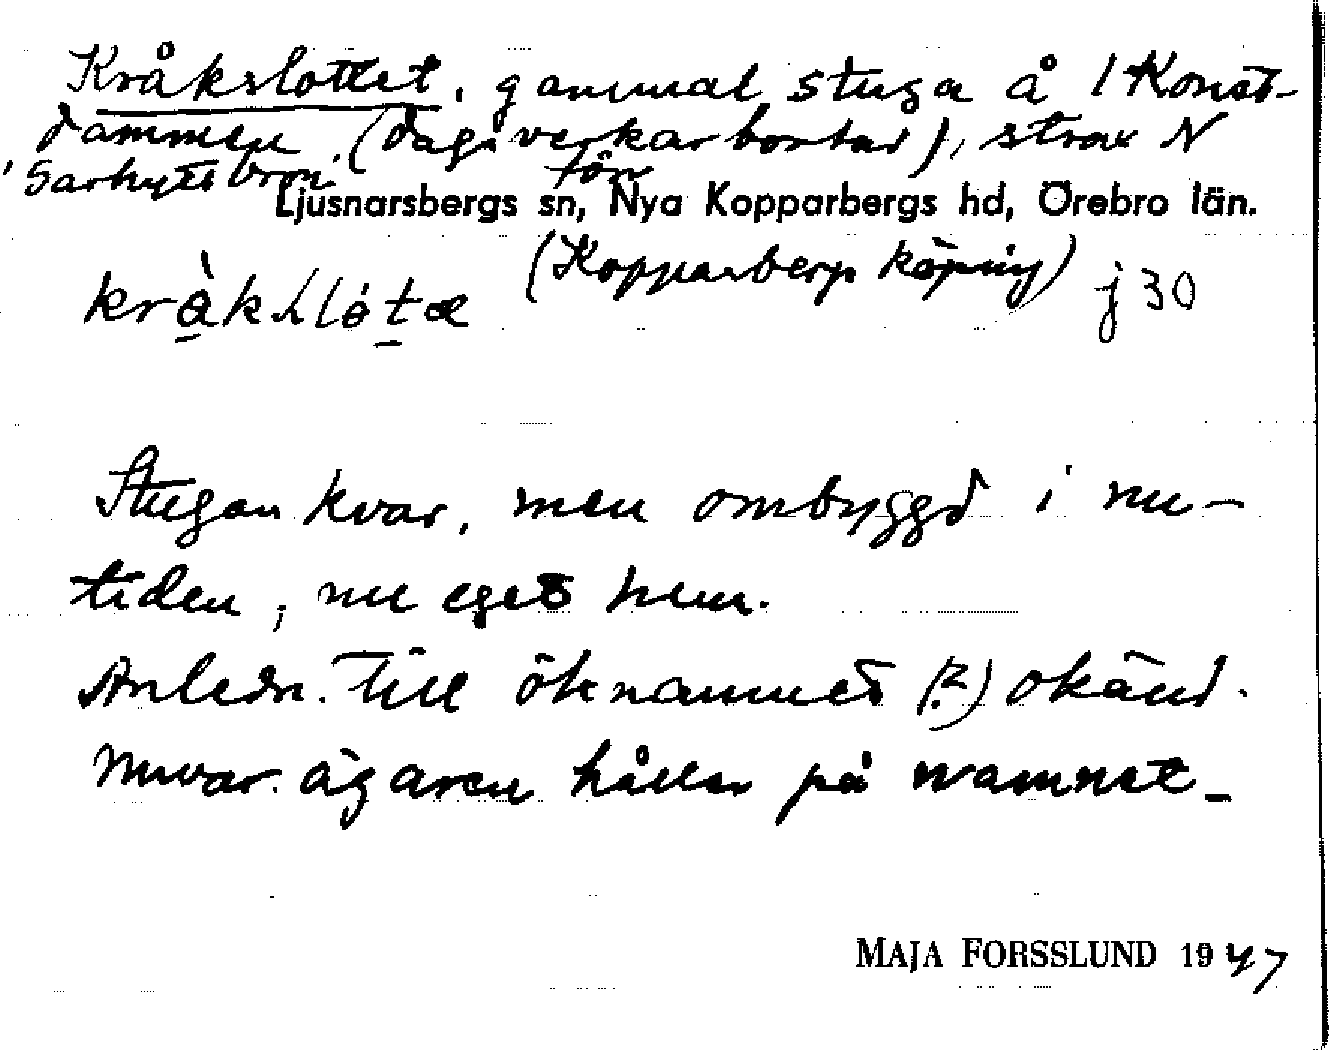 Kråkslottet, gammal stuga å /Konst-
dammen (dagsverkarbostad), strax N
'Sarhyttbron. fön
Ljusnarsbergs sn, Nya Kopparbergs hd, Örebro län.
(Kopparbergs köping) j 30
Stugan kvar, men ombyggd i nu-
tiden, nu eget hem.
Anledn. till öknamnet (?) okänd.
Nuvar. ägaren håller på namnet_
MAJA FORSSLUND 1947